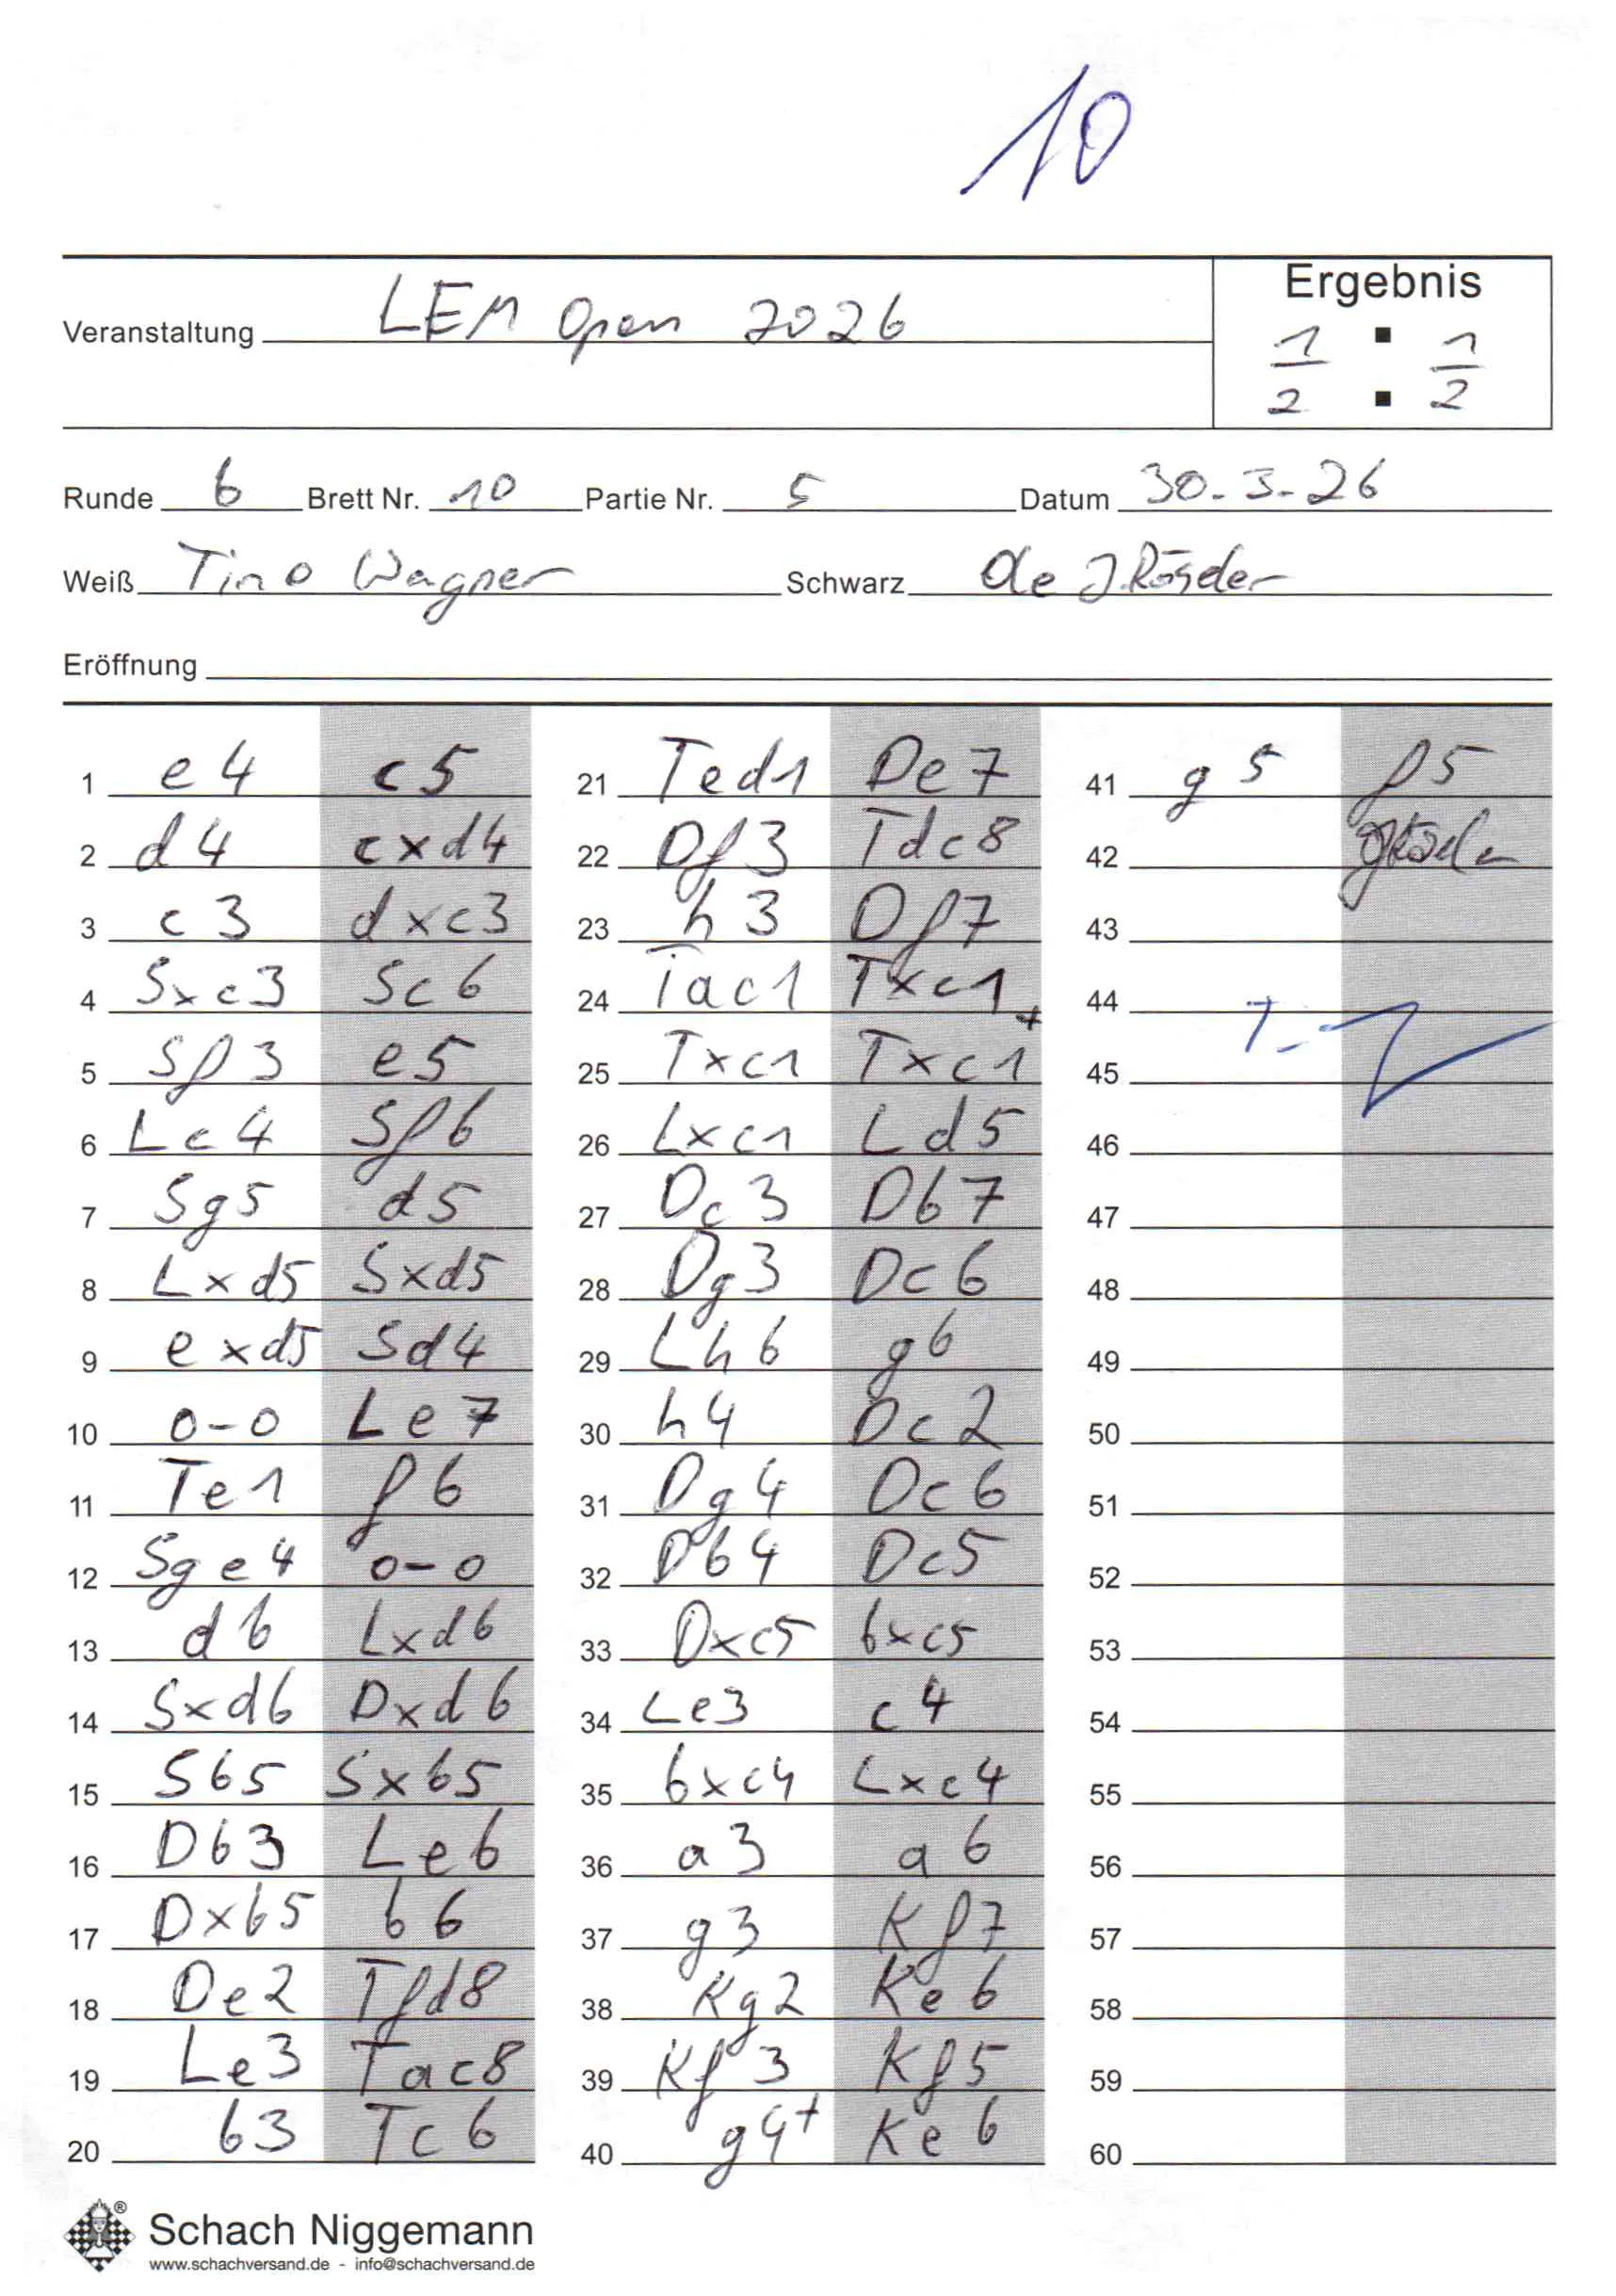 10
Ergebnis
Veranstaltung LEM Open 2026
1/2 : 1/2
Runde 6 Brett Nr. 10 Partie Nr. 5 Datum 30-3-26
Weiß Tino Wagner Schwarz Ole J. Röseler
Eröffnung
1 e4 c5
2 d4 cxd4
3 c3 dxc3
4 Sxc3 Sc6
5 Sf3 e5
6 Lc4 Sf6
7 Sg5 d5
8 Lxd5 Sxd5
9 exd5 Sd4
10 0-0 Le7
11 Te1 f6
12 Sge4 0-0
13 d6 Lxd6
14 Sxd6 Dxd6
15 Sb5 Sxb5
16 Db3 Le6
17 Dxb5 b6
18 De2 Tfd8
19 Le3 Tac8
20 b3 Tc6
21 Ted1 De7
22 Df3 Tdc8
23 h3 Df7
24 Tac1 Txc1+
25 Txc1 Txc1
26 Lxc1 Ld5
27 Dc3 Db7
28 Dg3 Dc6
29 Lh6 g6
30 h4 Dc2
31 Dg4 Dc6
32 Db4 Dc5
33 Dxc5 bxc5
34 Le3 c4
35 bxc4 Lxc4
36 a3 a6
37 g3 Kf7
38 Kg2 Ke6
39 Kf3 Kf5
40 g4+ Ke6
41 g5 f5
42
43
44
45
46
47
48
49
50
51
52
53
54
55
56
57
58
59
60
®
Schach Niggemann
www.schachversand.de - info@schachversand.de